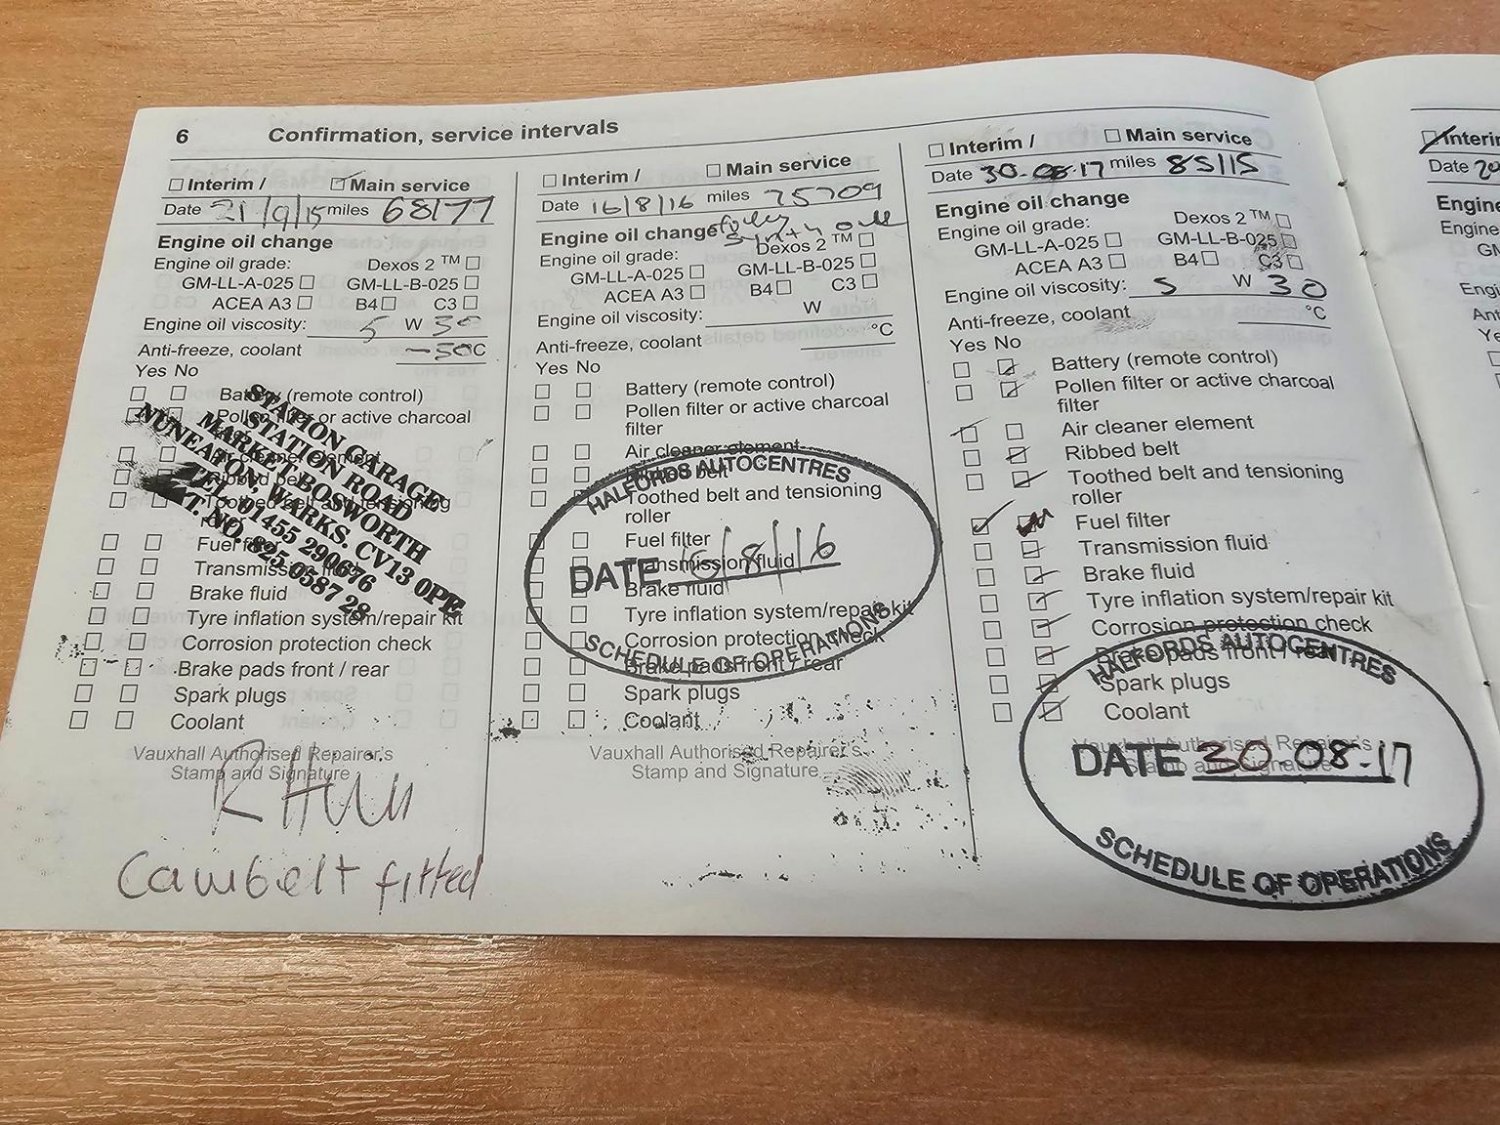 6 Confirmation, service intervals
Interim / Main service
Date 21/9/15 miles 68177
Engine oil change
Engine oil grade: Dexos 2 ™
GM-LL-A-025 GM-LL-B-025
ACEA A3 B4 C3
Engine oil viscosity: 5 W 30
Anti-freeze, coolant -50C
Yes No
Battery (remote control)
Pollen filter or active charcoal
Air cleaner element
Ribbed belt
Toothed belt and tensioning
Fuel filter
Transmission fluid
Brake fluid
Tyre inflation system/repair kit
Corrosion protection check
Brake pads front / rear
Spark plugs
Coolant
STATION GARAGE
STATION ROAD
MARKET BOSWORTH
NUNEATON, WARKS. CV13 0PE
TEL 01455 290676
NO. 825 0587 28
Vauxhall Authorised Repairer's
Stamp and Signature
Cambelt fitted
Interim / Main service
Date 16/8/16 miles 75709
fully
Engine oil change
Engine oil grade: Dexos 2 ™
GM-LL-A-025 GM-LL-B-025
ACEA A3 B4 C3
Engine oil viscosity: W
Anti-freeze, coolant °C
Yes No
Battery (remote control)
Pollen filter or active charcoal
filter
Air cleaner element
Ribbed belt
Toothed belt and tensioning
roller
Fuel filter
Transmission fluid
Brake fluid
Tyre inflation system/repair kit
Corrosion protection check
Brake pads front / rear
Spark plugs
Coolant
HALFORDS AUTOCENTRES
DATE 16/8/16
SCHEDULE OF OPERATIONS
Vauxhall Authorised Repairer's
Stamp and Signature
Interim / Main service
Date 30-08-17 miles 85115
Engine oil change
Engine oil grade: Dexos 2 ™
GM-LL-A-025 GM-LL-B-025
ACEA A3 B4 C3
Engine oil viscosity: 5 W 30
Anti-freeze, coolant °C
Yes No
Battery (remote control)
Pollen filter or active charcoal
filter
Air cleaner element
Ribbed belt
Toothed belt and tensioning
roller
Fuel filter
Transmission fluid
Brake fluid
Tyre inflation system/repair kit
Corrosion protection check
Brake pads front / rear
Spark plugs
Coolant
HALFORDS AUTOCENTRES
Vauxhall Authorised Repairer's
Stamp and Signature
DATE 30-08-17
SCHEDULE OF OPERATIONS
Date 20
Engine